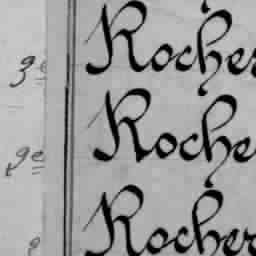 Rocher
9e Roche
Rocher